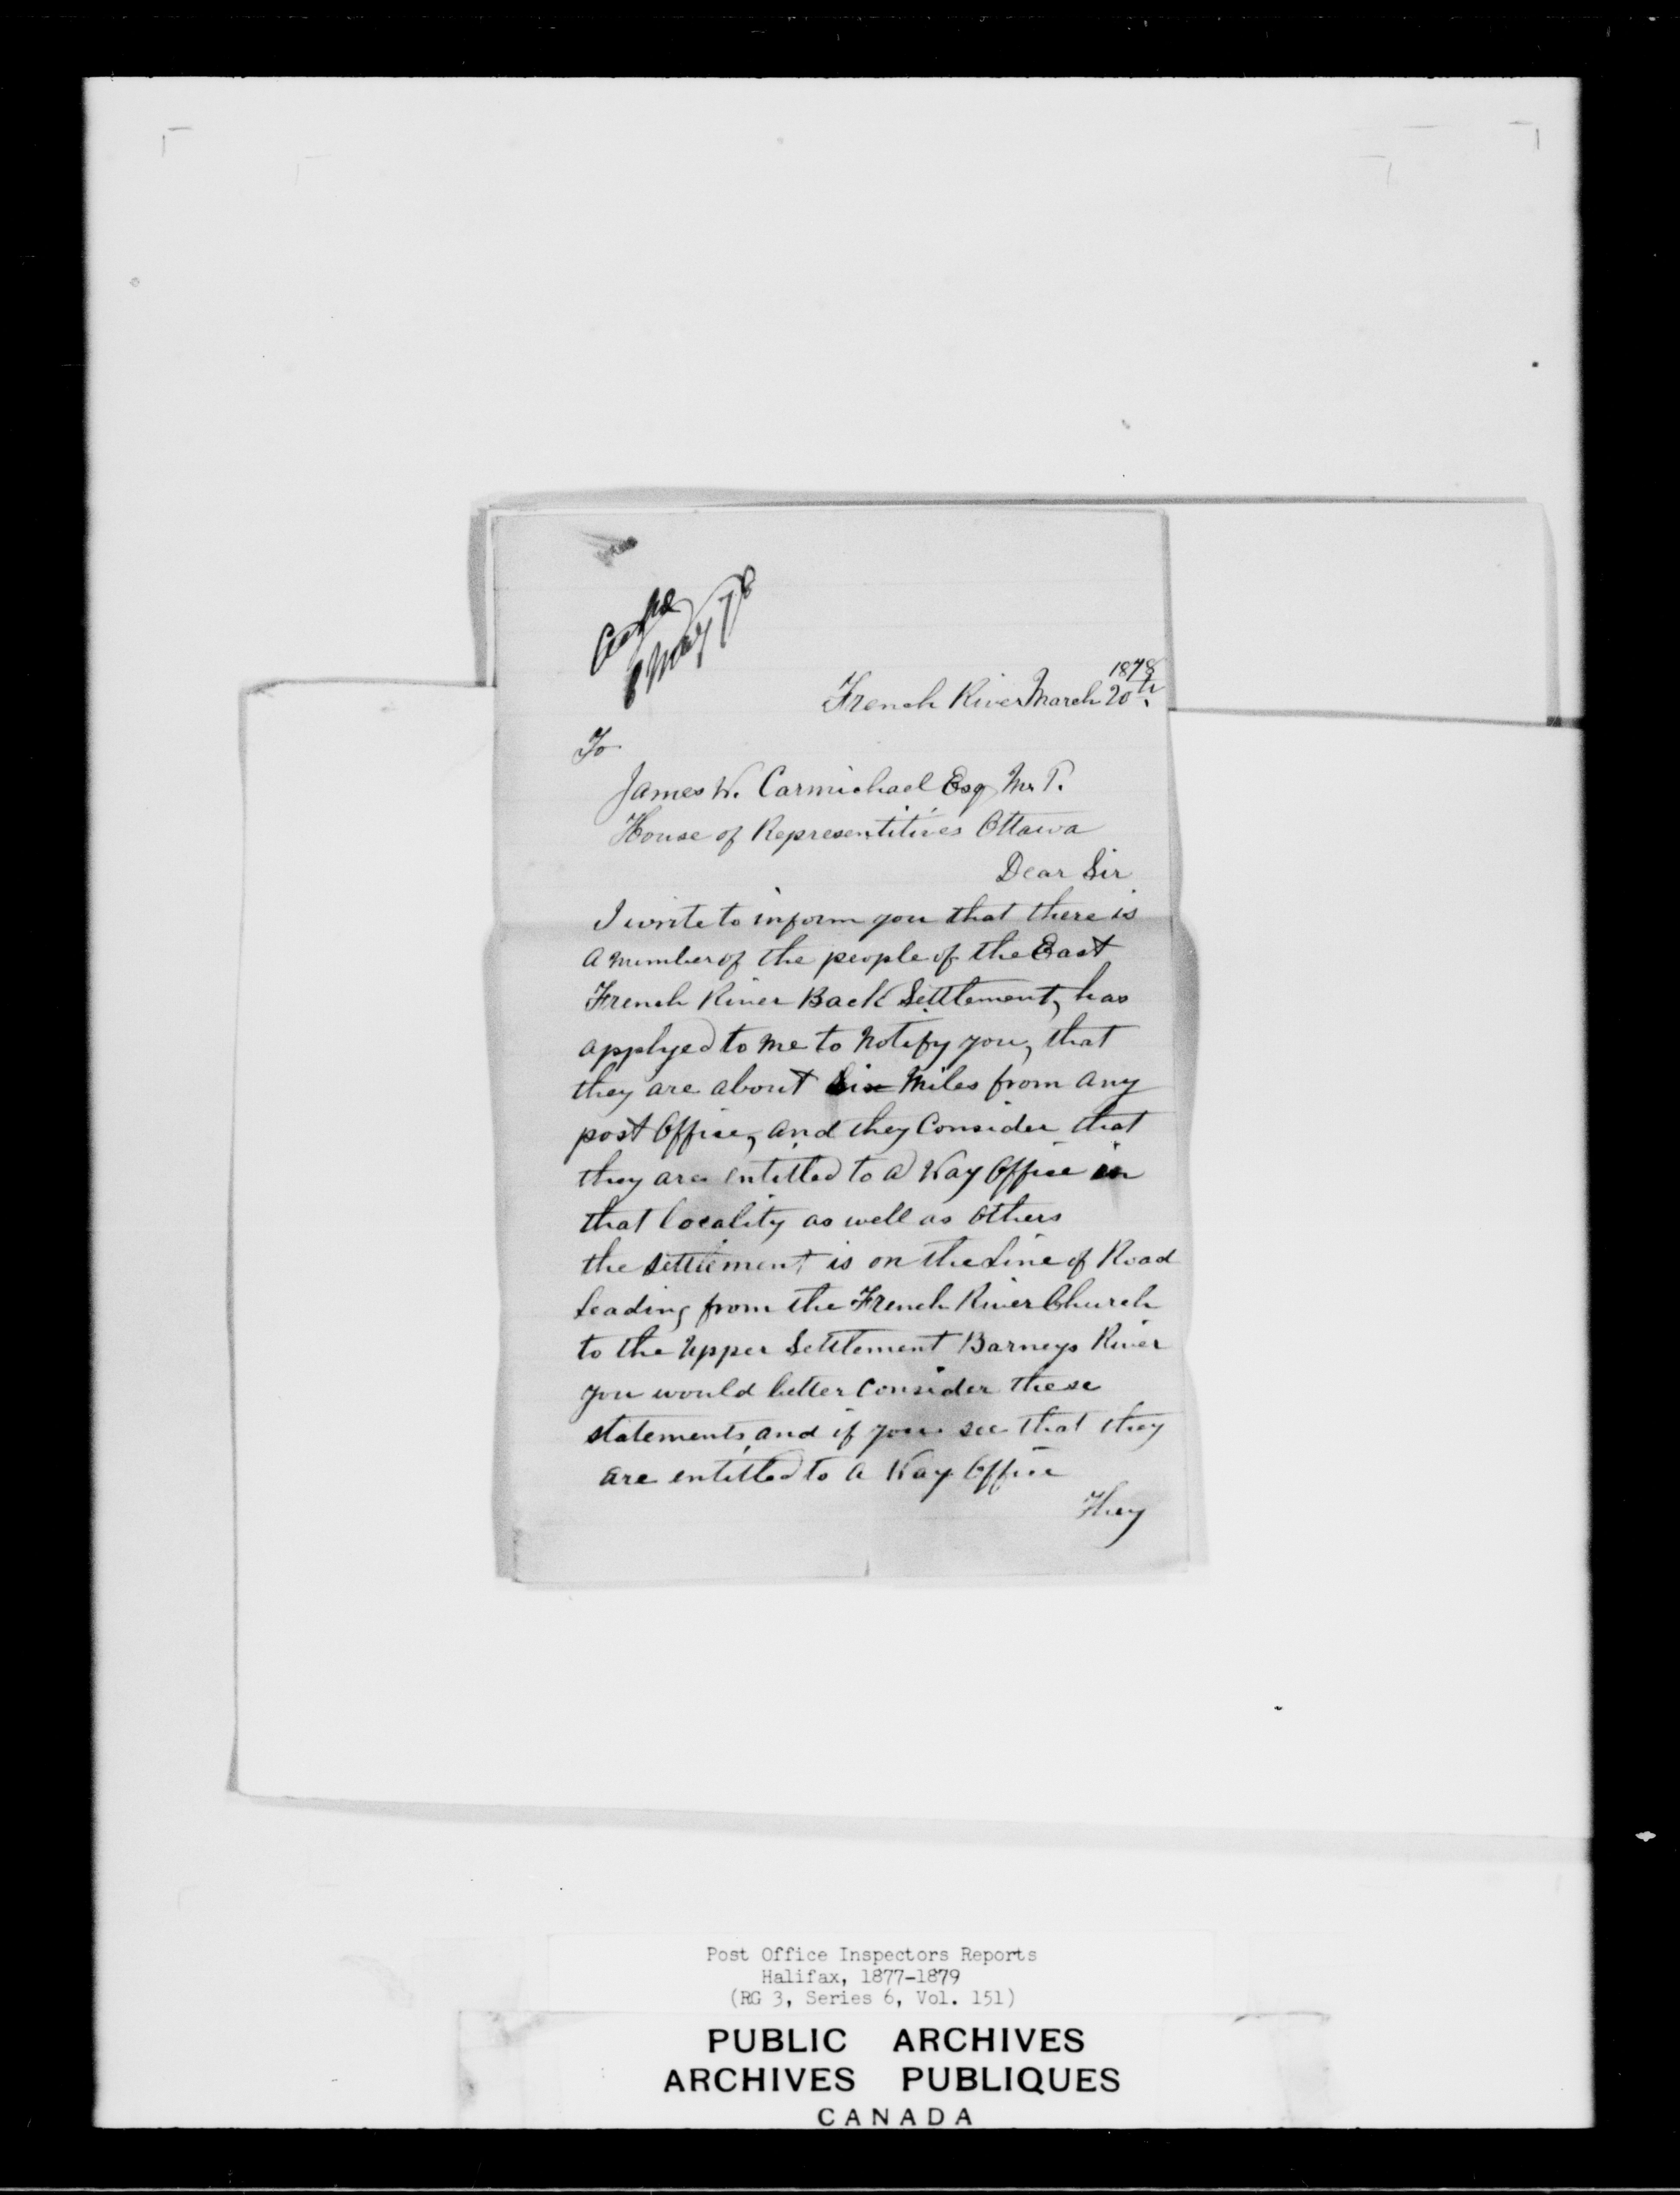 May 78
1878
French River March 20th.
To
James W. Carmichael Esq M. P.
House of Representitives Ottawa
Dear Sir
I write to inform you that there is
a number of the people of the East
French River Back Settlement, has
applyed to me to Notify you, that
they are about Six Miles from any
post Office, and they Consider that
they are entitled to a Way Office in
that locality as well as Others
the settlement is on the Line of Road
leading from the French River Church
to the Upper Settlement Barneys River
you would better Consider these
statements, and if you see that they
are entitled to a Way Office
They
Post Office Inspectors Reports
Halifax, 1877-1879
(RG 3, Series 6, Vol. 151)
PUBLIC ARCHIVES
ARCHIVES PUBLIQUES
CANADA